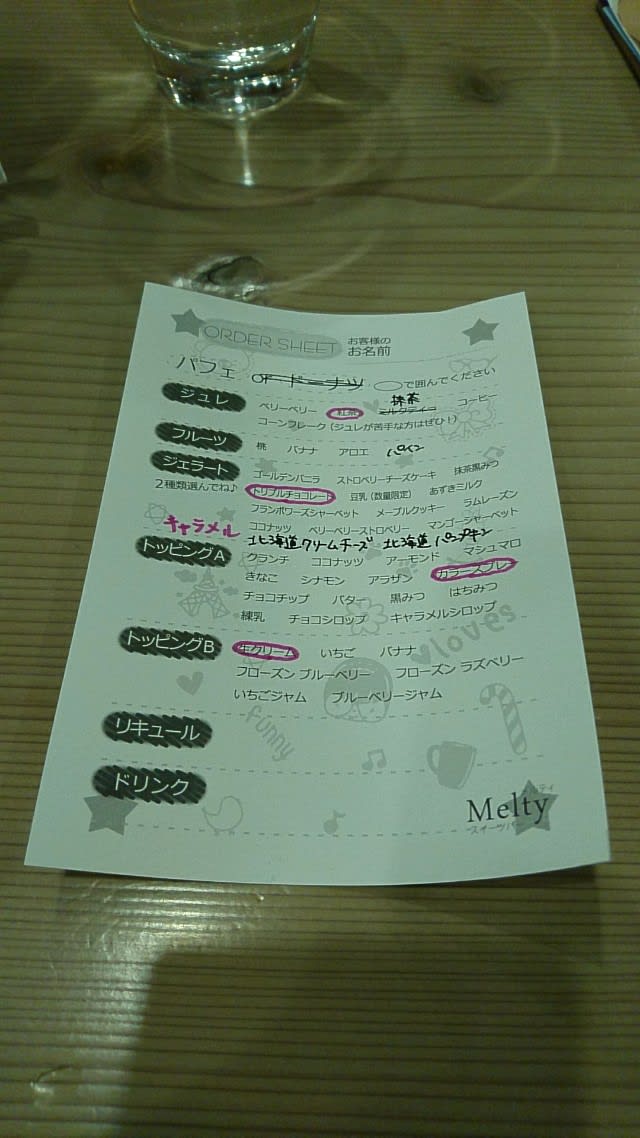 ORDER SHEET お客様の
お名前
パフェ or ドーナツ ◯で囲んでください
ジュレ ベリーベリー 紅茶 抹茶 ミルクティー コーヒー
コーンフレーク(ジュレが苦手な方はぜひ!)
フルーツ 桃 バナナ アロエ パイン
ジェラート ゴールデンバニラ ストロベリーチーズケーキ 抹茶黒みつ
2種類選んでね♪ トリプルチョコレート 豆乳(数量限定) あずきミルク
フランボワーズシャーベット メープルクッキー ラムレーズン
ココナッツ ベリーベリーストロベリー マンゴーシャーベット
キャラメル 北海道クリームチーズ 北海道パンプキン
トッピングA クランチ ココナッツ アーモンド マシュマロ
きなこ シナモン アラザン カラースプレー
チョコチップ バター 黒みつ はちみつ
練乳 チョコシロップ キャラメルシロップ
トッピングB 生クリーム いちご バナナ
フローズン ブルーベリー フローズン ラズベリー
いちごジャム ブルーベリージャム
loves
funny
リキュール
ドリンク
Melty
スイーツバー